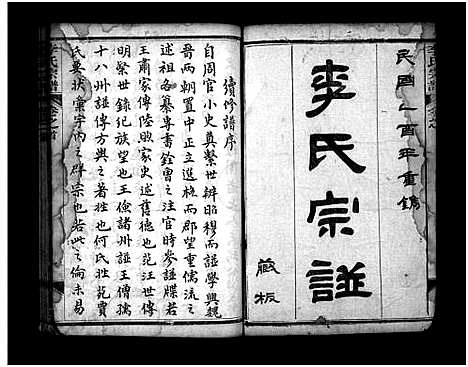 民國乙酉年重鐫
李氏宗譜
藏板
續修譜序
自周官小史奠繫世辨昭穆而譜學興魏
晉兩朝置中正立選格而郡望重儒流之
述祖各纂專書銓曹之注官時參譜牒若
王肅家傳陸煦家史述舊德也范汪世傳
明粲世錄紀族望也王儉諸州譜王僧孺
十八州譜傳方輿之著姓也何氏姓苑賈
氏要狀彙宇內之群宗也若此之倫未易